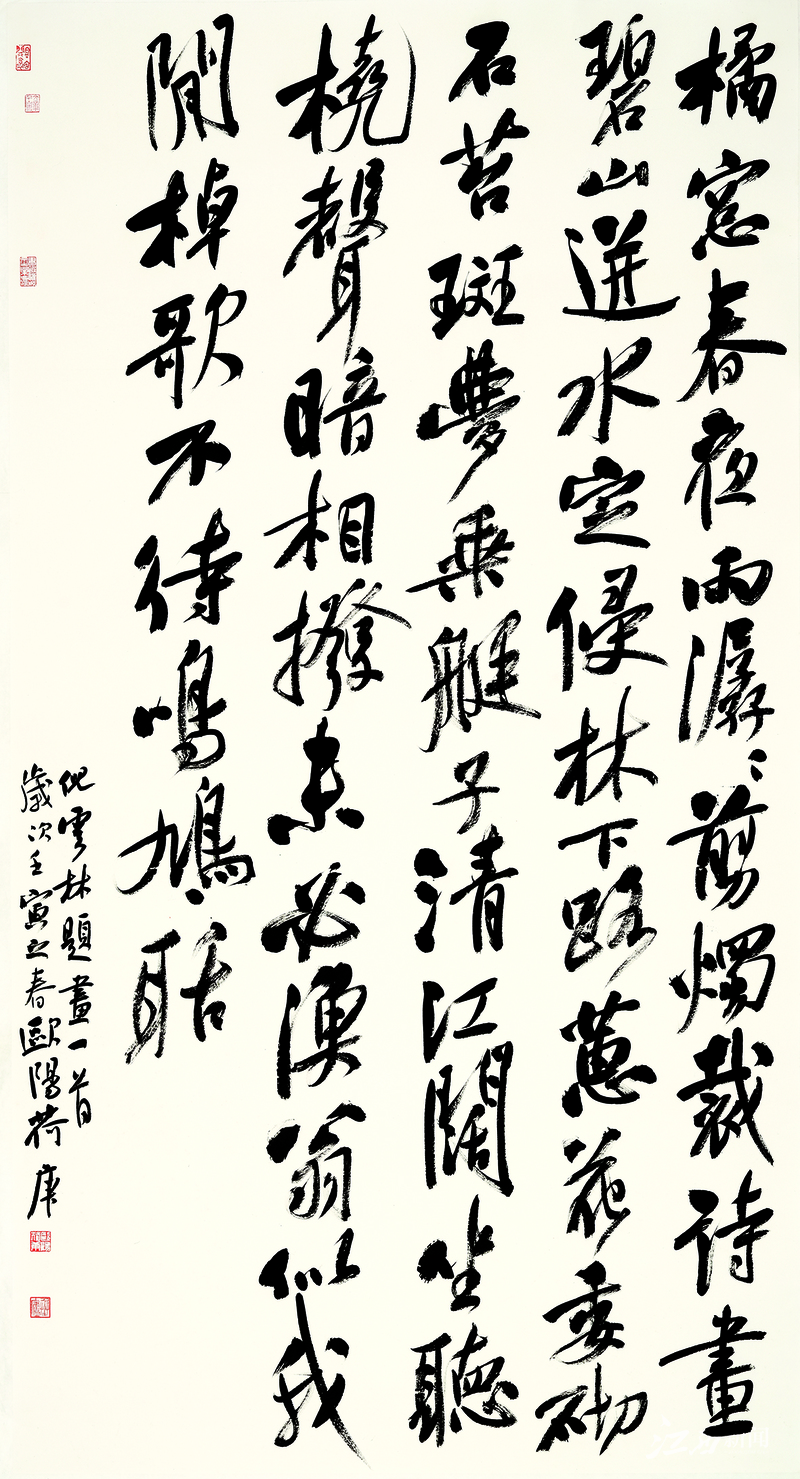 橘窓春夜雨潺々剪燭裁詩畫
碧山迸水定侵林下路蕙花委砌
石苔斑夢乘艇子清江闊坐聽
橈聲暗相撥未必漁翁似我
閒棹歌不待鳴鳩聒
倪雲林題畫一首
歲次壬寅之春歐陽荷庚